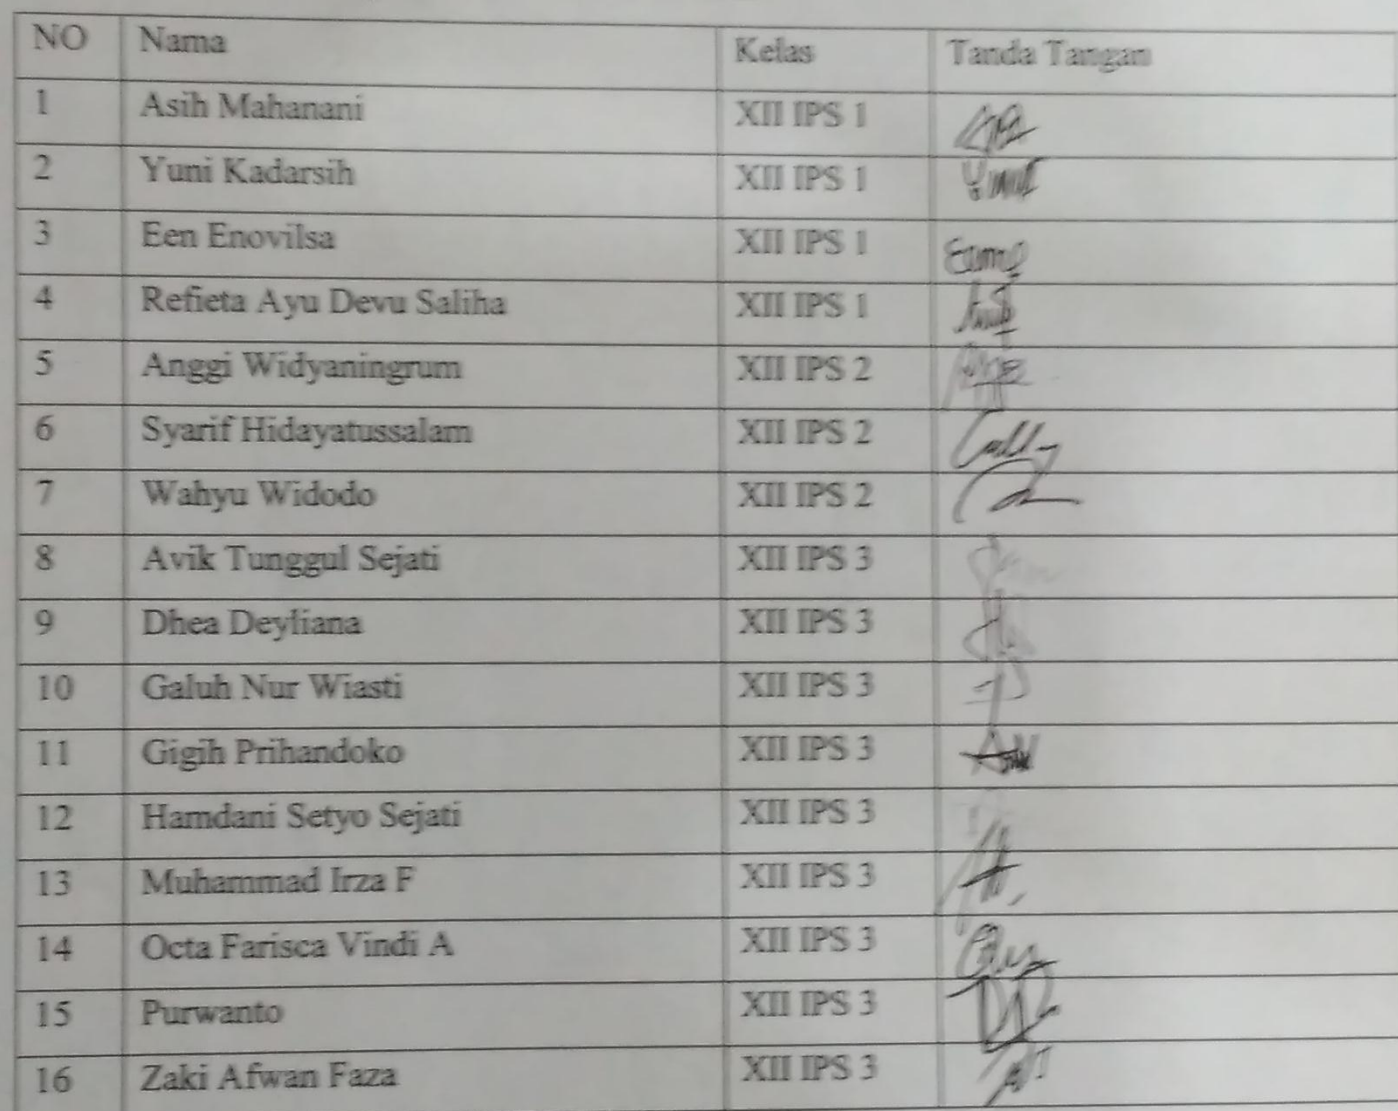 NO Nama Kelas Tanda Tangan
1 Asih Mahanani XII IPS 1
2 Yuni Kadarsih XII IPS 1
3 Een Enovilsa XII IPS 1
4 Refieta Ayu Devu Saliha XII IPS 1
5 Anggi Widyaningrum XII IPS 2
6 Syarif Hidayatussalam XII IPS 2
7 Wahyu Widodo XII IPS 2
8 Avik Tunggul Sejati XII IPS 3
9 Dhea Deyliana XII IPS 3
10 Galuh Nur Wiasti XII IPS 3
11 Gigih Prihandoko XII IPS 3
12 Hamdani Setyo Sejati XII IPS 3
13 Muhammad Irza F XII IPS 3
14 Octa Farisca Vindi A XII IPS 3
15 Purwanto XII IPS 3
16 Zaki Afwan Faza XII IPS 3